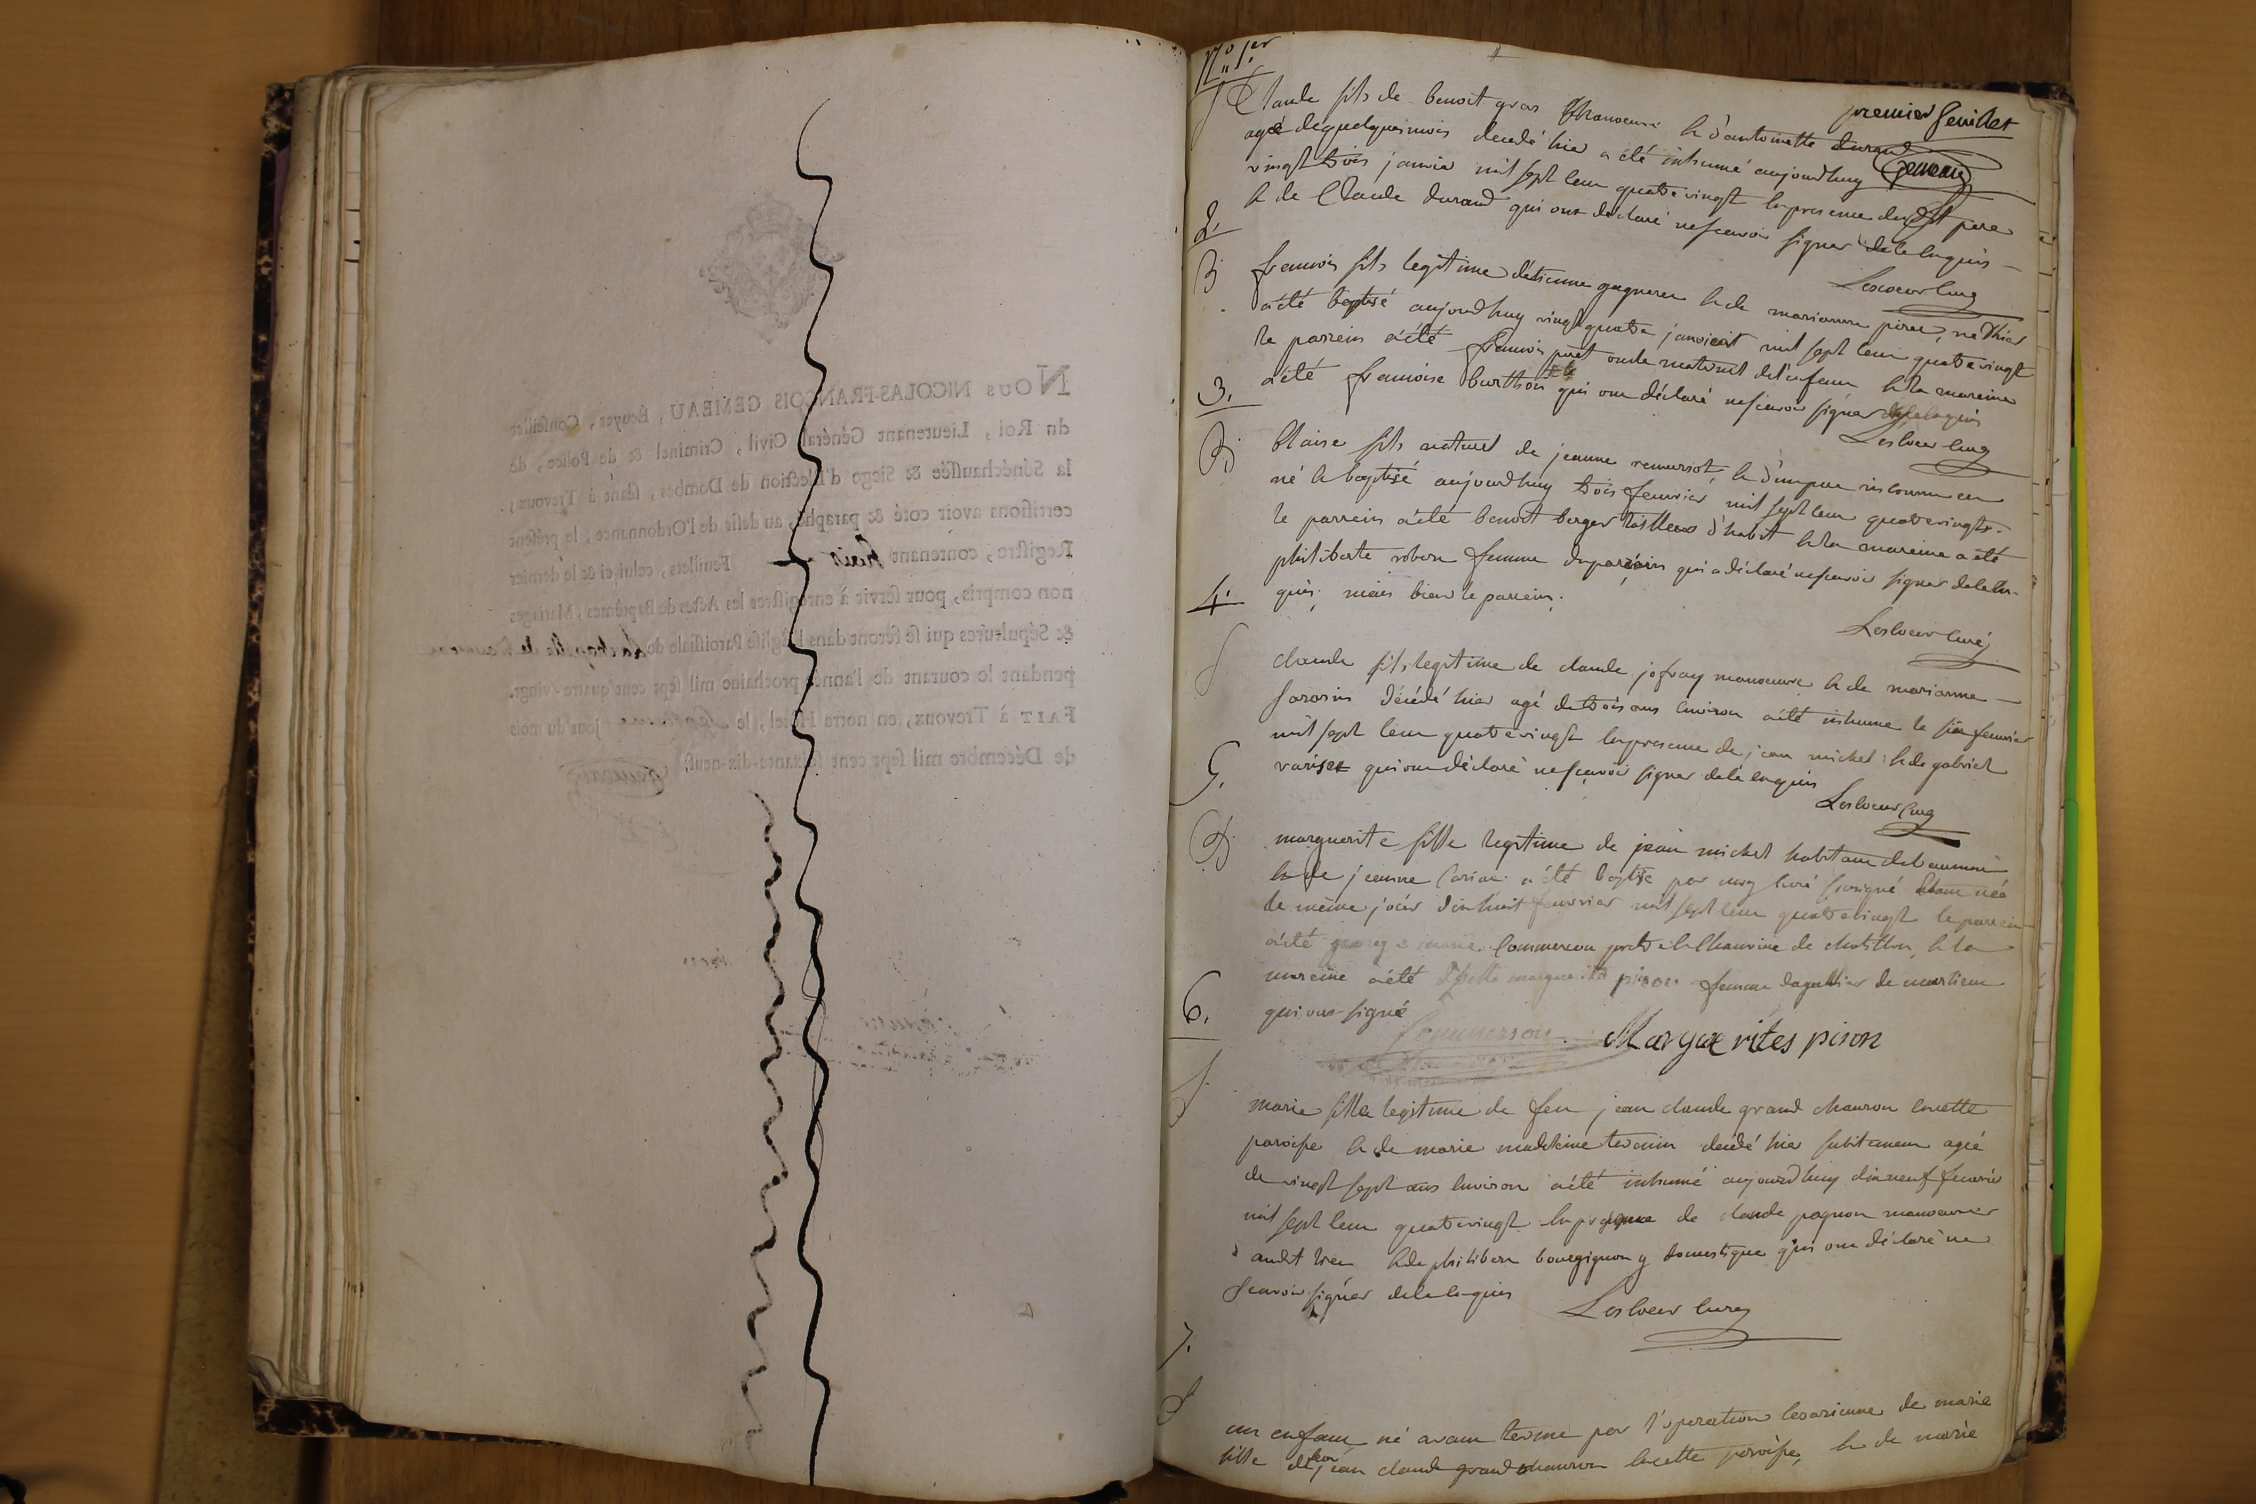 Nous NICOLAS-FRANÇOIS GEMEAU, Ecuyer, Conseiller
du Roi, Lieutenant Général Civil, Criminel & de Police, de
la Sénéchaussée & Siege d'Election de Dombes, séant à Trevoux;
certifions avoir coté & paraphé, au desir de l'Ordonnance, le présent
Registre, contenant huit Feuillets, celui ci & le dernier
non compris, pour servir à enregistrer les Actes de Baptêmes, Mariages
& Sépultures qui se feront dans l'Eglise Paroissiale de
pendant le courant de l'année prochaine mil sept cent quatre-vingt.
FAIT à Trevoux, en notre Hôtel, le jour du mois
de Décembre mil sept cent soixante-dix-neuf.
N.º 1er
premier feuillet
S Claude fils de benoit gras manoeuvre & d'antoinette durand
agé de quelques mois decedé hier a été inhumé aujourdhuy
vingt trois janvier mil sept cent quatre vingt en presence dudit pere
& de Claude durand qui ont declaré ne scavoir signer de ce enquis
Lescoeur curé
2.
B francois fils legitime d'etienne gagneur & de marianne piret, né d'hier
a été baptisé aujourdhuy vingt quatre janvier mil sept cent quatre vingt
le parrein a été francois piret oncle maternel de l'enfant & la mareine
a été francoise burthon qui ont déclaré ne scavoir signer de ce enquis
Lescoeur curé
3.
B blaise fils naturel de jeanne & d'un pere inconnu
né & baptisé aujourdhuy trois fevrier mil sept cent quatre vingts
le parrein a été benoit berger tailleur d'habit & la mareine a été
philiberte robin femme du parrein qui a déclaré ne scavoir signer de ce en-
quis; mais bien le parrein;
Lescoeur curé
4.
S claude fils legitime de claude jofray manoeuvre & de marianne
sarasin décédé hier agé de trois ans environ a été inhumé le six fevrier
mil sept cent quatre vingt en presence de jean michel & de gabriel
variset qui ont déclaré ne scavoir signer de ce enquis
Lescoeur curé
5.
B marguerite fille legitime de jean michel habitant de
& de jeanne a été baptisé par moy curé sousigné etant née
le même jour dix huit fevrier mil sept cent quatre vingt le parrein
a été Commerson pretre & Chanoine de chatillon, & la
mareine a été marguerite pison femme de
qui ont signé
Commerson Margue rites pison
6.
S marie fille legitime de feu jean claude grand chauron en cette
paroisse & de marie madeleine decedé hier subitement agée
de vingt sept ans environ a été inhumé aujourdhuy dix neuf fevrier
mil sept cent quatre vingt en presence de claude pagnon manoeuvrier
audit lieu & de philibert bourgignon y domestique qui ont déclaré ne
scavoir signer de ce enquis
Lescoeur curé
7.
S un enfant né avant terme par l'operation cesarienne de marie
fille de feu jean claude grand chauron en cette paroisse, & de marie